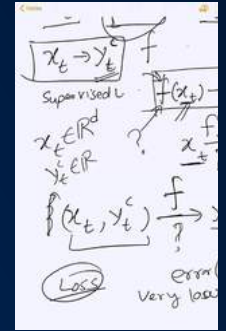 Notes
x_t → y_t^c f
Supervised L
f(x_t) –
x_t ∈ ℝ^d
y_t^c ∈ ℝ
?
x_t f
{(x_t, y_t^c) f →
?
Loss
error(
very low